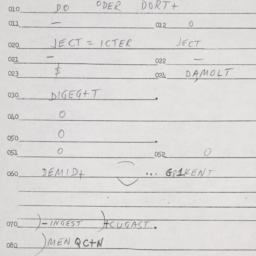 010 DO ODER DORT+
011 — 012 O
020 JECT = ICTER JECT
021 — 022 —
023 $ 024 DAMOLT
030 DIGEG+T .
040 O
050 O .
051 O 052 O
060 DEMID+ ... GE1KENT
070 )-INGEST )+CUGAST.
080 )MEN QC+N